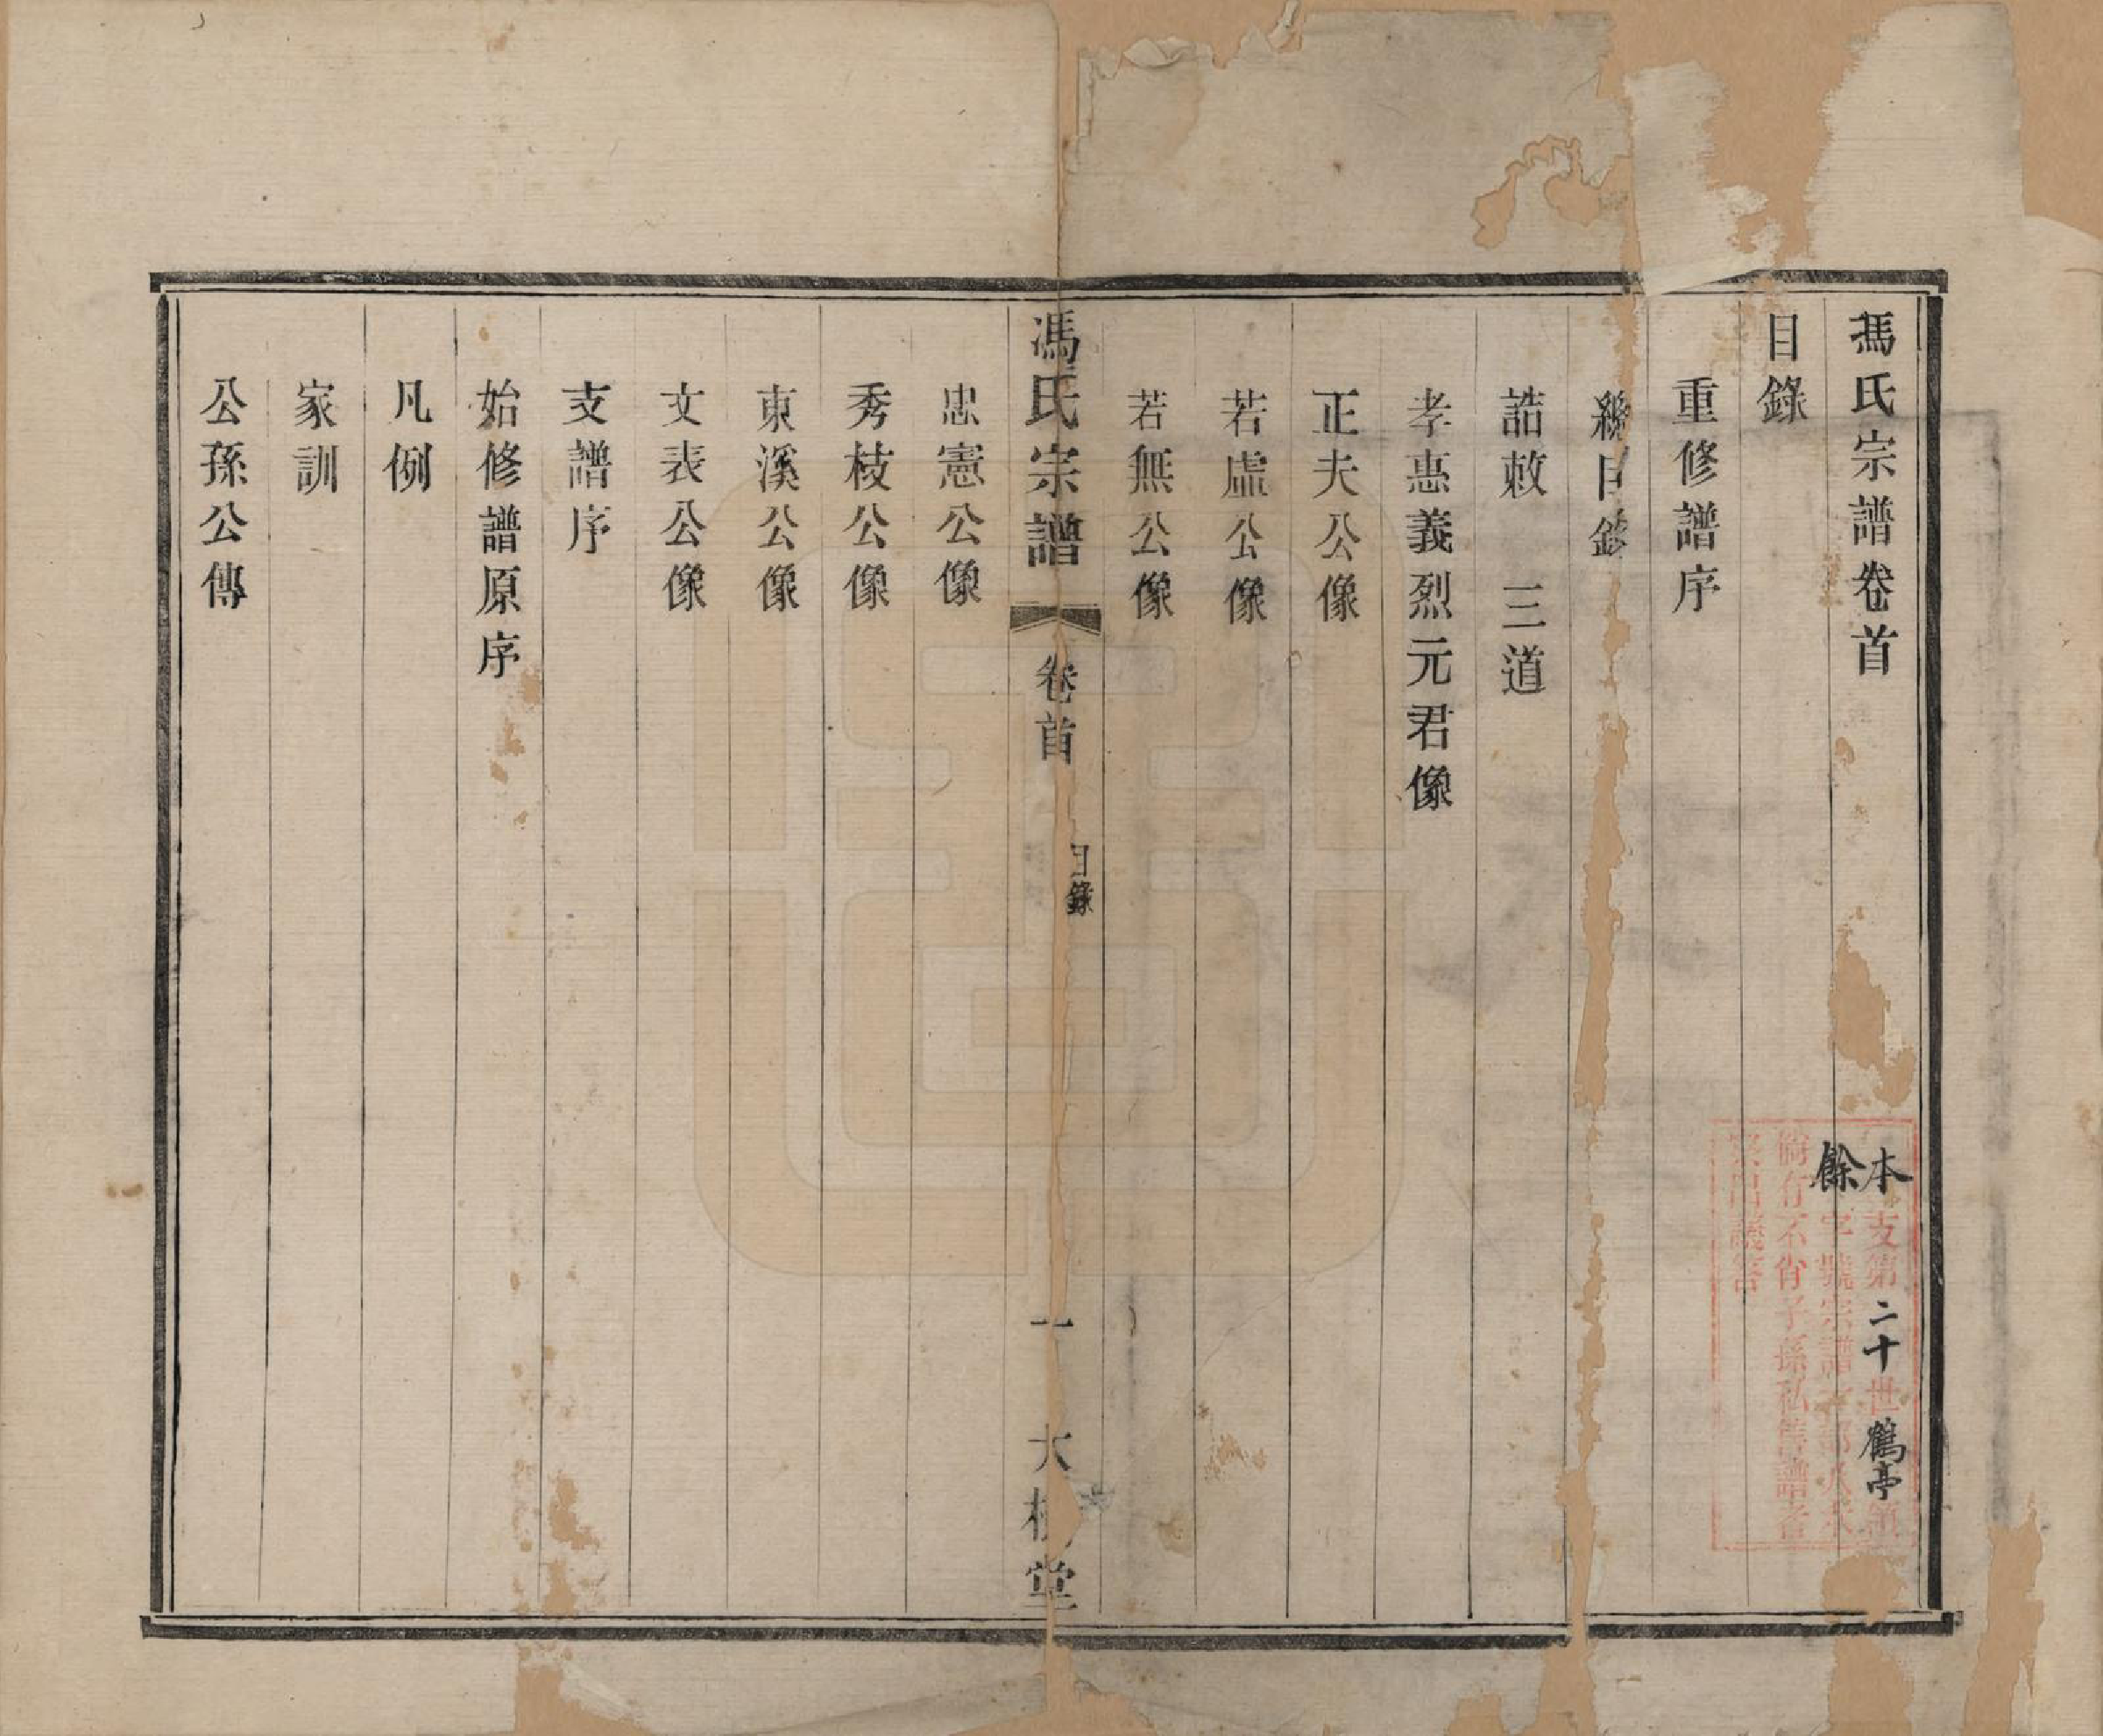 馮氏宗譜卷首
目錄
重修譜序
總目錄
誥敕 三道
孝惠義烈元君像
正夫公像
若虛公像
若無公像
馮氏宗譜 卷首 目錄 一 大樹堂
忠憲公像
秀枝公像
東溪公像
文表公像
支譜序
始修譜原序
凡例
家訓
公孫公傳
本支第二十世鶴亭領
餘字號宗譜
倘有不肖子孫私售譜者